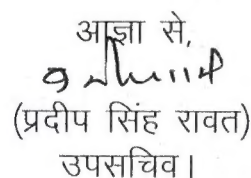 आज्ञा से,
(प्रदीप सिंह रावत)
उपसचिव।